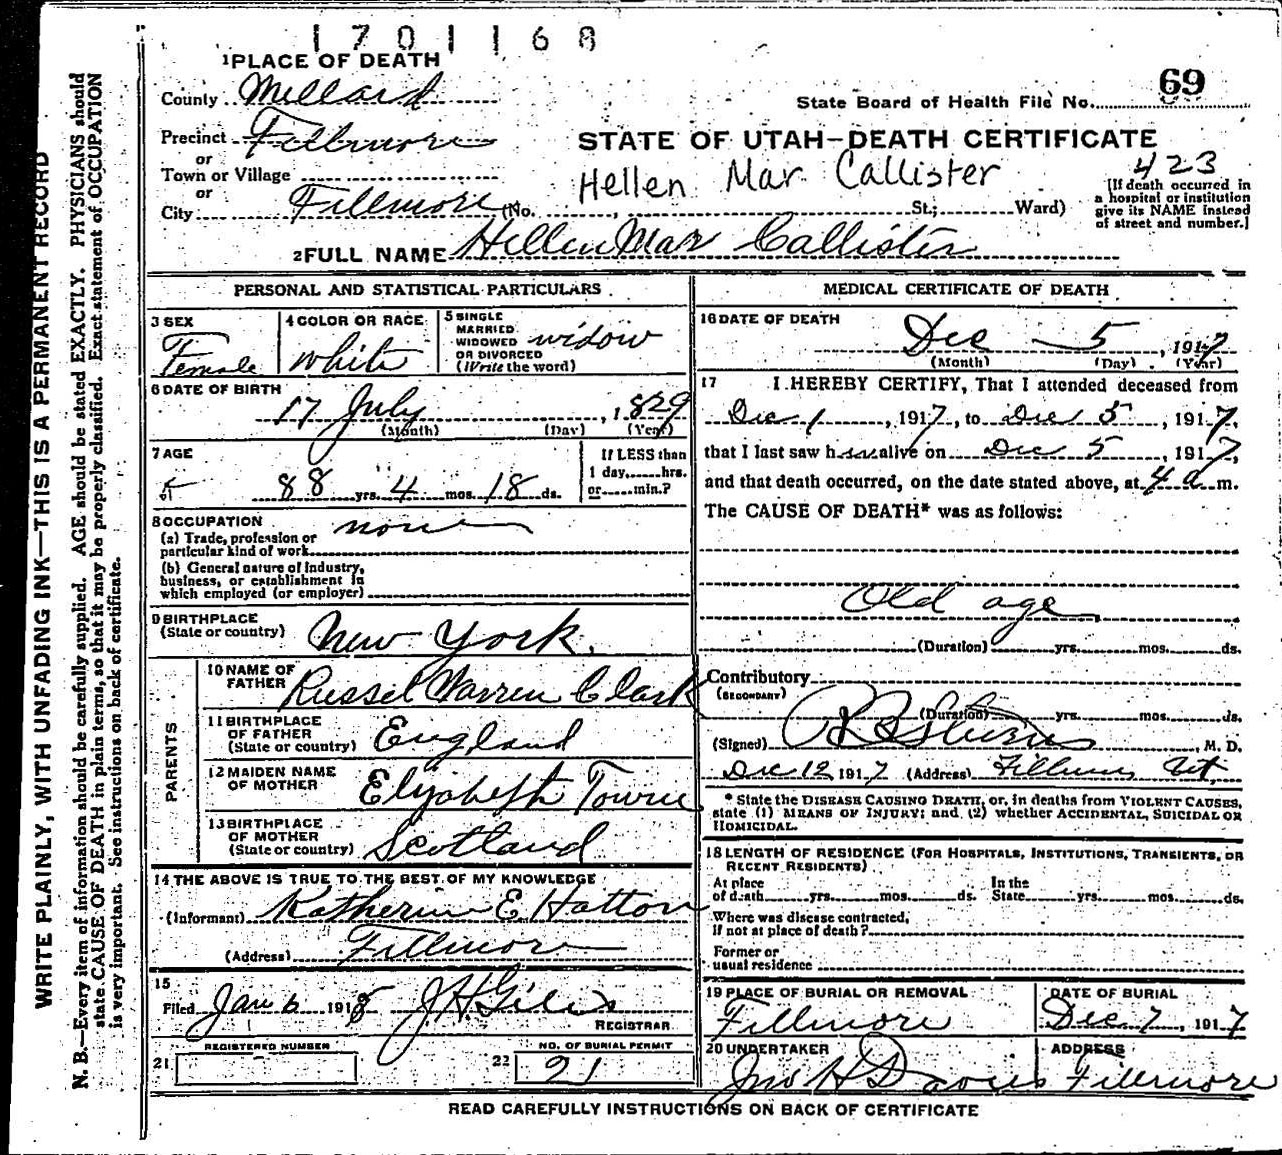 1701168
1 PLACE OF DEATH
69
County Millard
State Board of Health File No.
Precinct Fillmore
STATE OF UTAH—DEATH CERTIFICATE
or
Town or Village
Hellen Mar Callister
423
or
City Fillmore (No. St.; Ward)
[If death occurred in
a hospital or institution
give its NAME instead
of street and number.]
2 FULL NAME Hellen Mar Callister
PERSONAL AND STATISTICAL PARTICULARS
3 SEX
Female
4 COLOR OR RACE
White
5 SINGLE
MARRIED
WIDOWED
OR DIVORCED
(Write the word)
widow
6 DATE OF BIRTH
17 July, 1829
(Month) (Day) (Year)
7 AGE
88 yrs. 4 mos. 18 ds.
If LESS than
1 day, hrs.
or min.?
8 OCCUPATION none
(a) Trade, profession or
particular kind of work
(b) General nature of industry,
business, or establishment in
which employed (or employer)
9 BIRTHPLACE
(State or country) New York.
PARENTS
10 NAME OF
FATHER Russel Warren Clark
11 BIRTHPLACE
OF FATHER
(State or country) England
12 MAIDEN NAME
OF MOTHER Elizabeth Towne
13 BIRTHPLACE
OF MOTHER
(State or country) Scotland
14 THE ABOVE IS TRUE TO THE BEST OF MY KNOWLEDGE
(Informant) Katherin E Hatton
(Address) Fillmore
15
Filed Jan 6 1918 J H Giles
REGISTRAR
REGISTERED NUMBER
21
NO. OF BURIAL PERMIT
22 21
MEDICAL CERTIFICATE OF DEATH
16 DATE OF DEATH
Dec 5, 1917
(Month) (Day) (Year)
17 I HEREBY CERTIFY, That I attended deceased from
Dec 1, 1917, to Dec 5, 1917,
that I last saw her alive on Dec 5, 1917,
and that death occurred, on the date stated above, at 4 a m.
The CAUSE OF DEATH* was as follows:
Old age
(Duration) yrs. mos. ds.
Contributory
(SECONDARY)
(Duration) yrs. mos. ds.
(Signed) , M. D.
Dec 12 1917 (Address) Fillmore Ut,
* State the DISEASE CAUSING DEATH, or, in deaths from VIOLENT CAUSES,
state (1) MEANS OF INJURY; and (2) whether ACCIDENTAL, SUICIDAL OR
HOMICIDAL.
18 LENGTH OF RESIDENCE (FOR HOSPITALS, INSTITUTIONS, TRANSIENTS, OR
RECENT RESIDENTS)
At place In the
of death yrs. mos. ds. State yrs. mos. ds.
Where was disease contracted,
If not at place of death?
Former or
usual residence
19 PLACE OF BURIAL OR REMOVAL
Fillmore
DATE OF BURIAL
Dec 7, 1917
20 UNDERTAKER
Jno H Davis
ADDRESS
Fillmore
READ CAREFULLY INSTRUCTIONS ON BACK OF CERTIFICATE
WRITE PLAINLY, WITH UNFADING INK—THIS IS A PERMANENT RECORD
N. B.—Every item of information should be carefully supplied. AGE should be stated EXACTLY. PHYSICIANS should
state CAUSE OF DEATH in plain terms, so that it may be properly classified. Exact statement of OCCUPATION
is very important. See instructions on back of certificate.